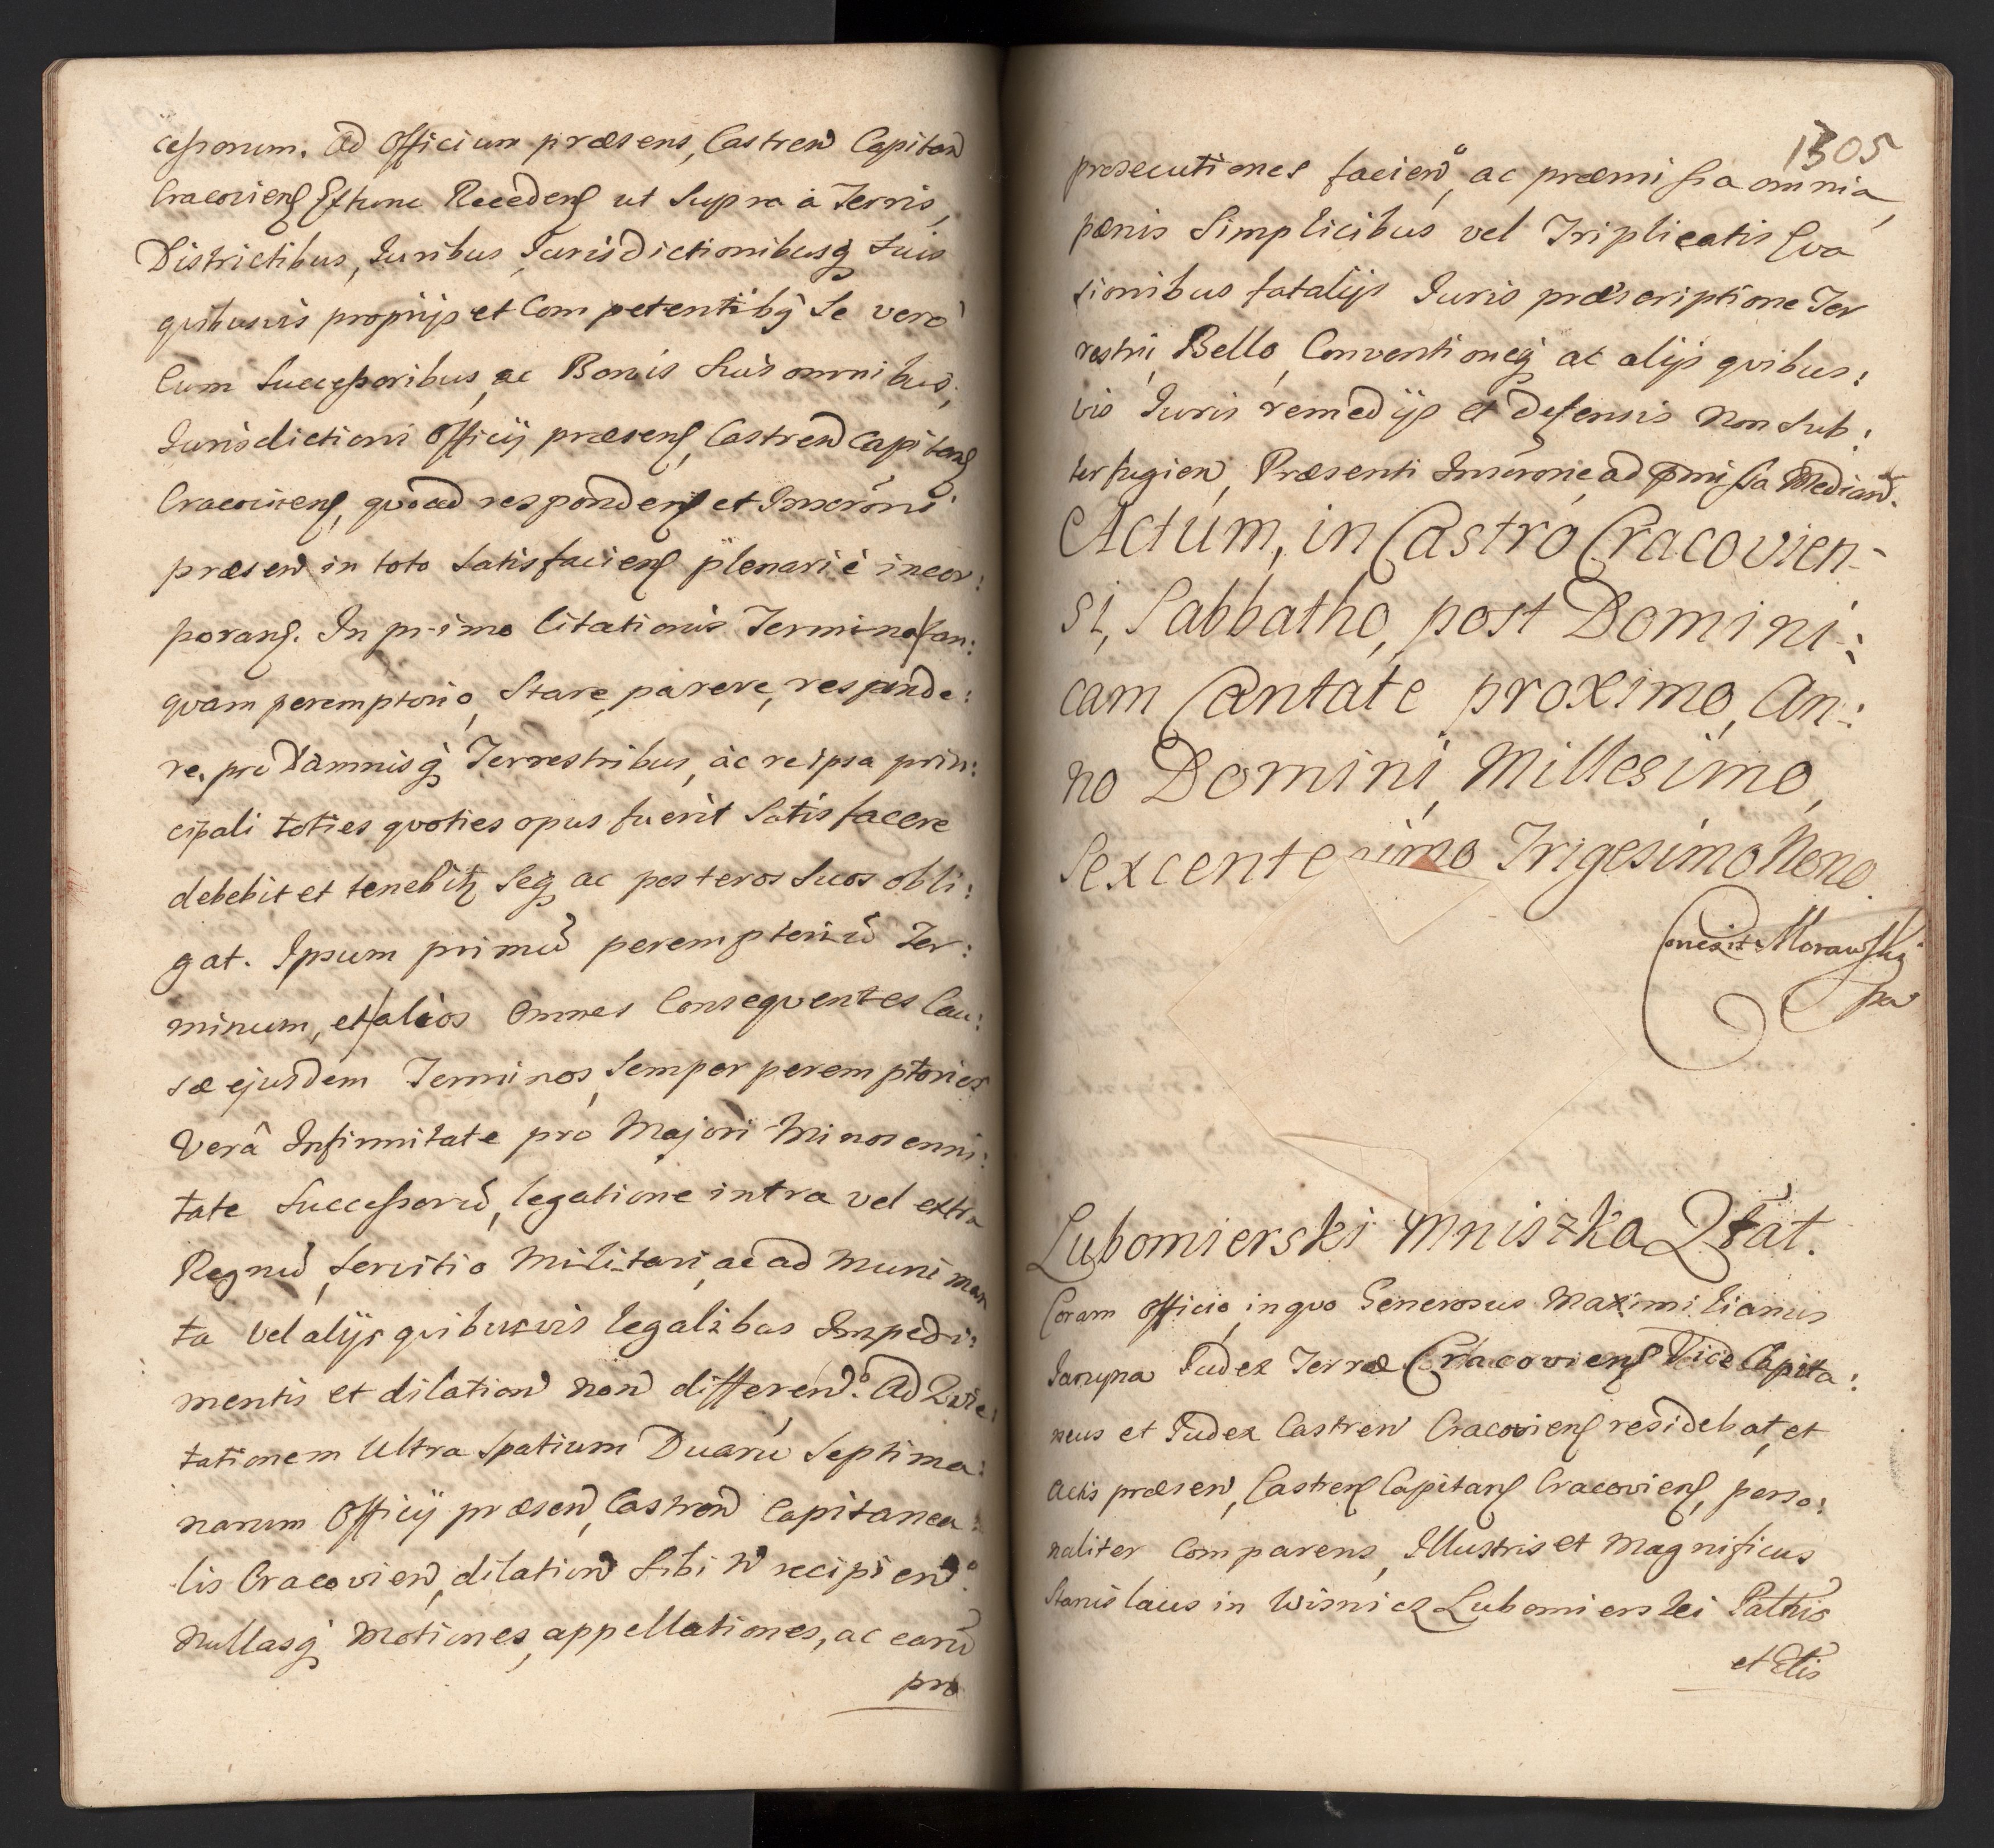 cessorum. Ad Officium præsens, Castren Capitan
Cracoviens Extunc Recedens ut Supra à Terris,
Districtibus, Juribus Jurisdictionibusq Suis
quibusvis proprijs et Competentibq Se verò
Cum Successoribus, ac Bonis Suis omnibus,
Jurisdictioni Officij præsens, Castren Capitans
Cracoviens, quoad respondens et Inscröni
præsen in toto Satisfaciens plenariè incor:
porans. In primo Citationis Termino tan:
quam peremptorio, Stare, parere, responde:
re, pro Damnisq Terrestribus, ac re ipsa prin:
cipali toties quoties opus fuerit Satisfacere
debebit et tenebitz Seq ac posteros Suos obli:
gat. Ipsum primũ peremptoriũ Ter:
minum, et alios Omnes Consequentes Cau:
sæ ejusdem Terminos, Semper peremptorios
Verâ Infirmitate pro Majori Minorenni:
tate Successorũ, legatione intra vel extra
Regnũ, Servitio Militari, ac ad Munimen
ta vel alijs quibusvis legalibus Impedi:
mentis et dilation non differen.º Ad Quie:
tationem Ultra Spatium Duarũ Septima:
narum Officij præsen, Castren Capitanea:
lis Cracovien, dilation Sibi N recipien.º
Nullasq Motiones, appellationes, ac earũ
pro
1305
prosecutiones facienº, ac præmissa omnia,
pœnis Simplicibus vel Triplicatis Eva
sionibus fatalijs Juris præscriptione Ter
restri, Bello, Conventioneq ac alijs quibus:
vis Juris remedijs et defensis Non Sub:
terfugien, Præsenti Inscrone, ad pmissa Median.
Actum, in Castro Cracovien-
si, Sabbatho, post Domini:
cam Cantate proximo, An:
no Domini, Millesimo,
Sexcentesimo Trigesimo Nono
Conexit Morawski
Lubomierski Mniszka Qtat.
Coram Officio, in quo Generosus Maximilianus
Judex Terræ Cracoviens Vice Capita:
neus et Judex Castren Cracoviens residebat, et
Actis præsen, Castrens Capitans Cracoviens, perso:
naliter Comparens, Illustris et Magnificus
Stanislaus in Wisnicz Lubomierski Pattis
et Ctis